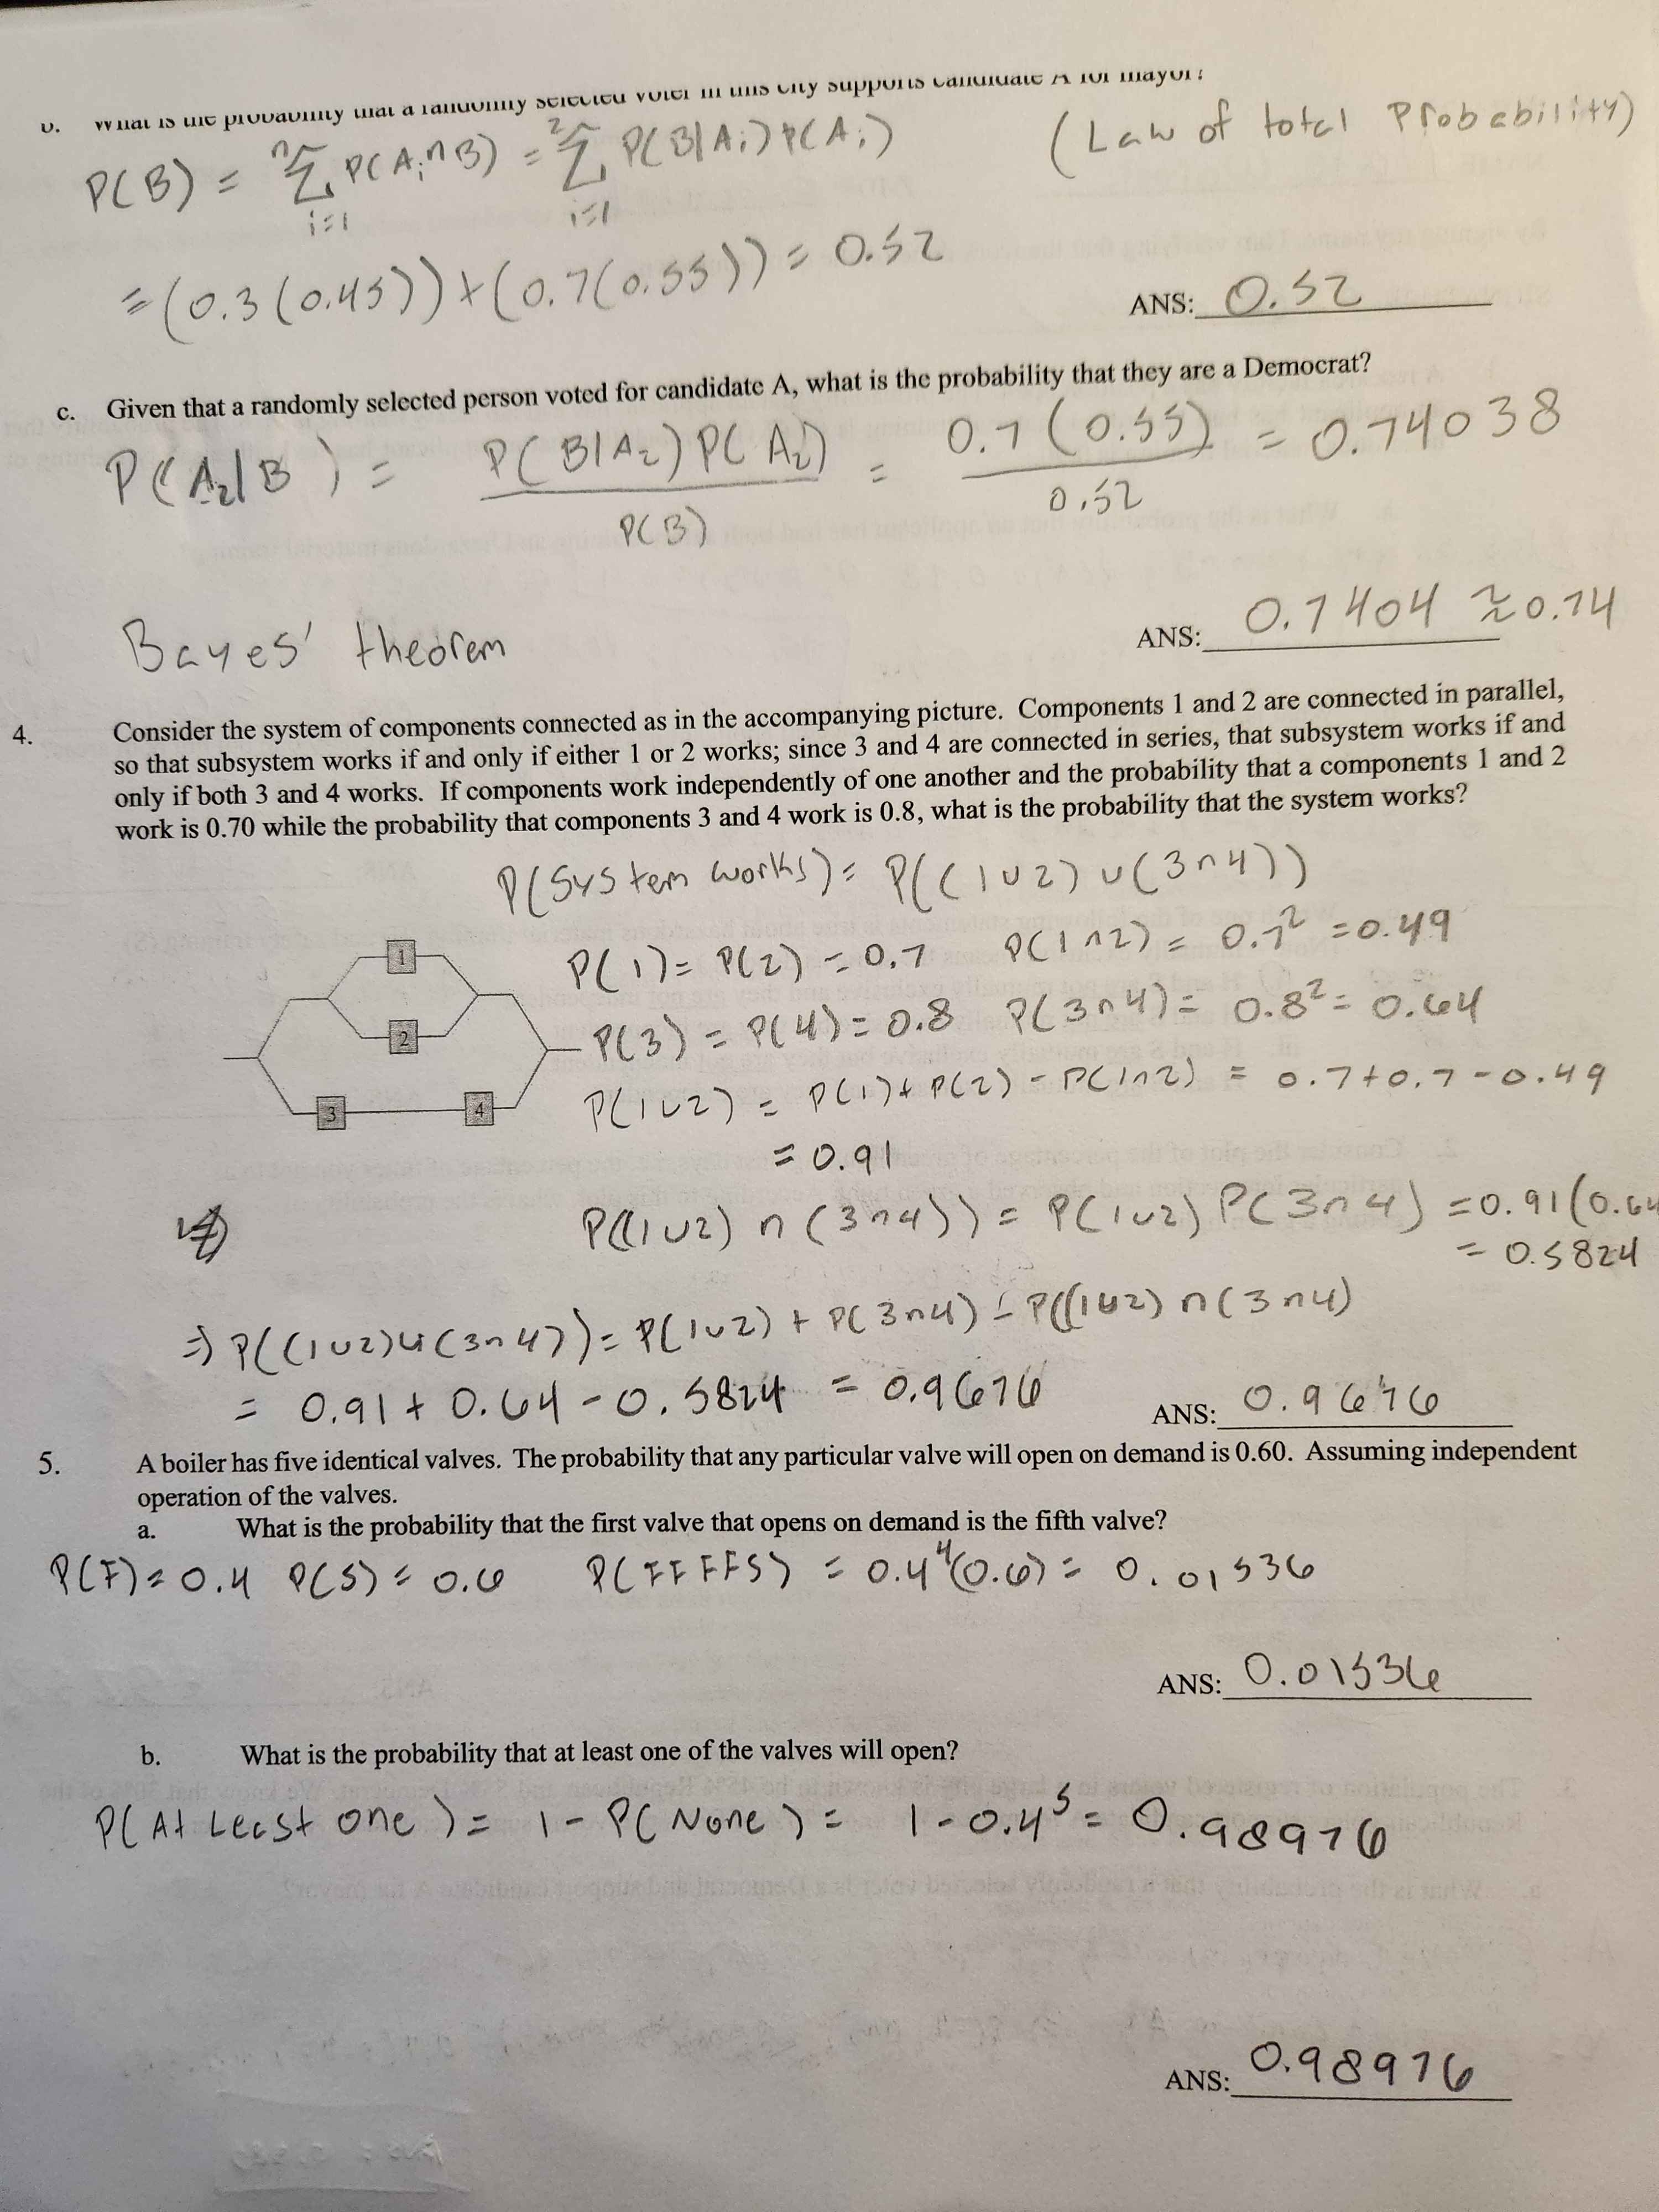 b. What is the probability that a randomly selected voter in this city supports candidate A for mayor?
P(B) = n Σ i=1 P(A_i ∩ B) = 2 Σ i=1 P(B|A_i) P(A_i) (Law of total Probability)
= (0.3 (0.45)) + (0.7(0.55)) = 0.52
ANS: 0.52
c. Given that a randomly selected person voted for candidate A, what is the probability that they are a Democrat?
P(A_2|B) = P(B|A_2) P(A_2) / P(B) = 0.7 (0.55) / 0.52 = 0.74038
Bayes' theorem
ANS: 0.7404 ≈ 0.74
4. Consider the system of components connected as in the accompanying picture. Components 1 and 2 are connected in parallel,
so that subsystem works if and only if either 1 or 2 works; since 3 and 4 are connected in series, that subsystem works if and
only if both 3 and 4 works. If components work independently of one another and the probability that a components 1 and 2
work is 0.70 while the probability that components 3 and 4 work is 0.8, what is the probability that the system works?
P(System works) = P((1∪2) ∪ (3∩4))
1
P(1) = P(2) = 0.7 P(1∩2) = 0.7² = 0.49
2
P(3) = P(4) = 0.8 P(3∩4) = 0.8² = 0.64
3 4
P(1∪2) = P(1) + P(2) - P(1∩2) = 0.7 + 0.7 - 0.49
= 0.91
P((1∪2) ∩ (3∩4)) = P(1∪2) P(3∩4) = 0.91(0.64
= 0.5824
⇒ P((1∪2)∪(3∩4)) = P(1∪2) + P(3∩4) - P((1∪2) ∩ (3∩4)
= 0.91 + 0.64 - 0.5824 = 0.9676
ANS: 0.9676
5. A boiler has five identical valves. The probability that any particular valve will open on demand is 0.60. Assuming independent
operation of the valves.
a. What is the probability that the first valve that opens on demand is the fifth valve?
P(F) = 0.4 P(S) = 0.6 P(FFFFS) = 0.4⁴(0.6) = 0.01536
ANS: 0.01536
b. What is the probability that at least one of the valves will open?
P(At Least one) = 1 - P(None) = 1 - 0.4⁵ = 0.98976
ANS: 0.98976